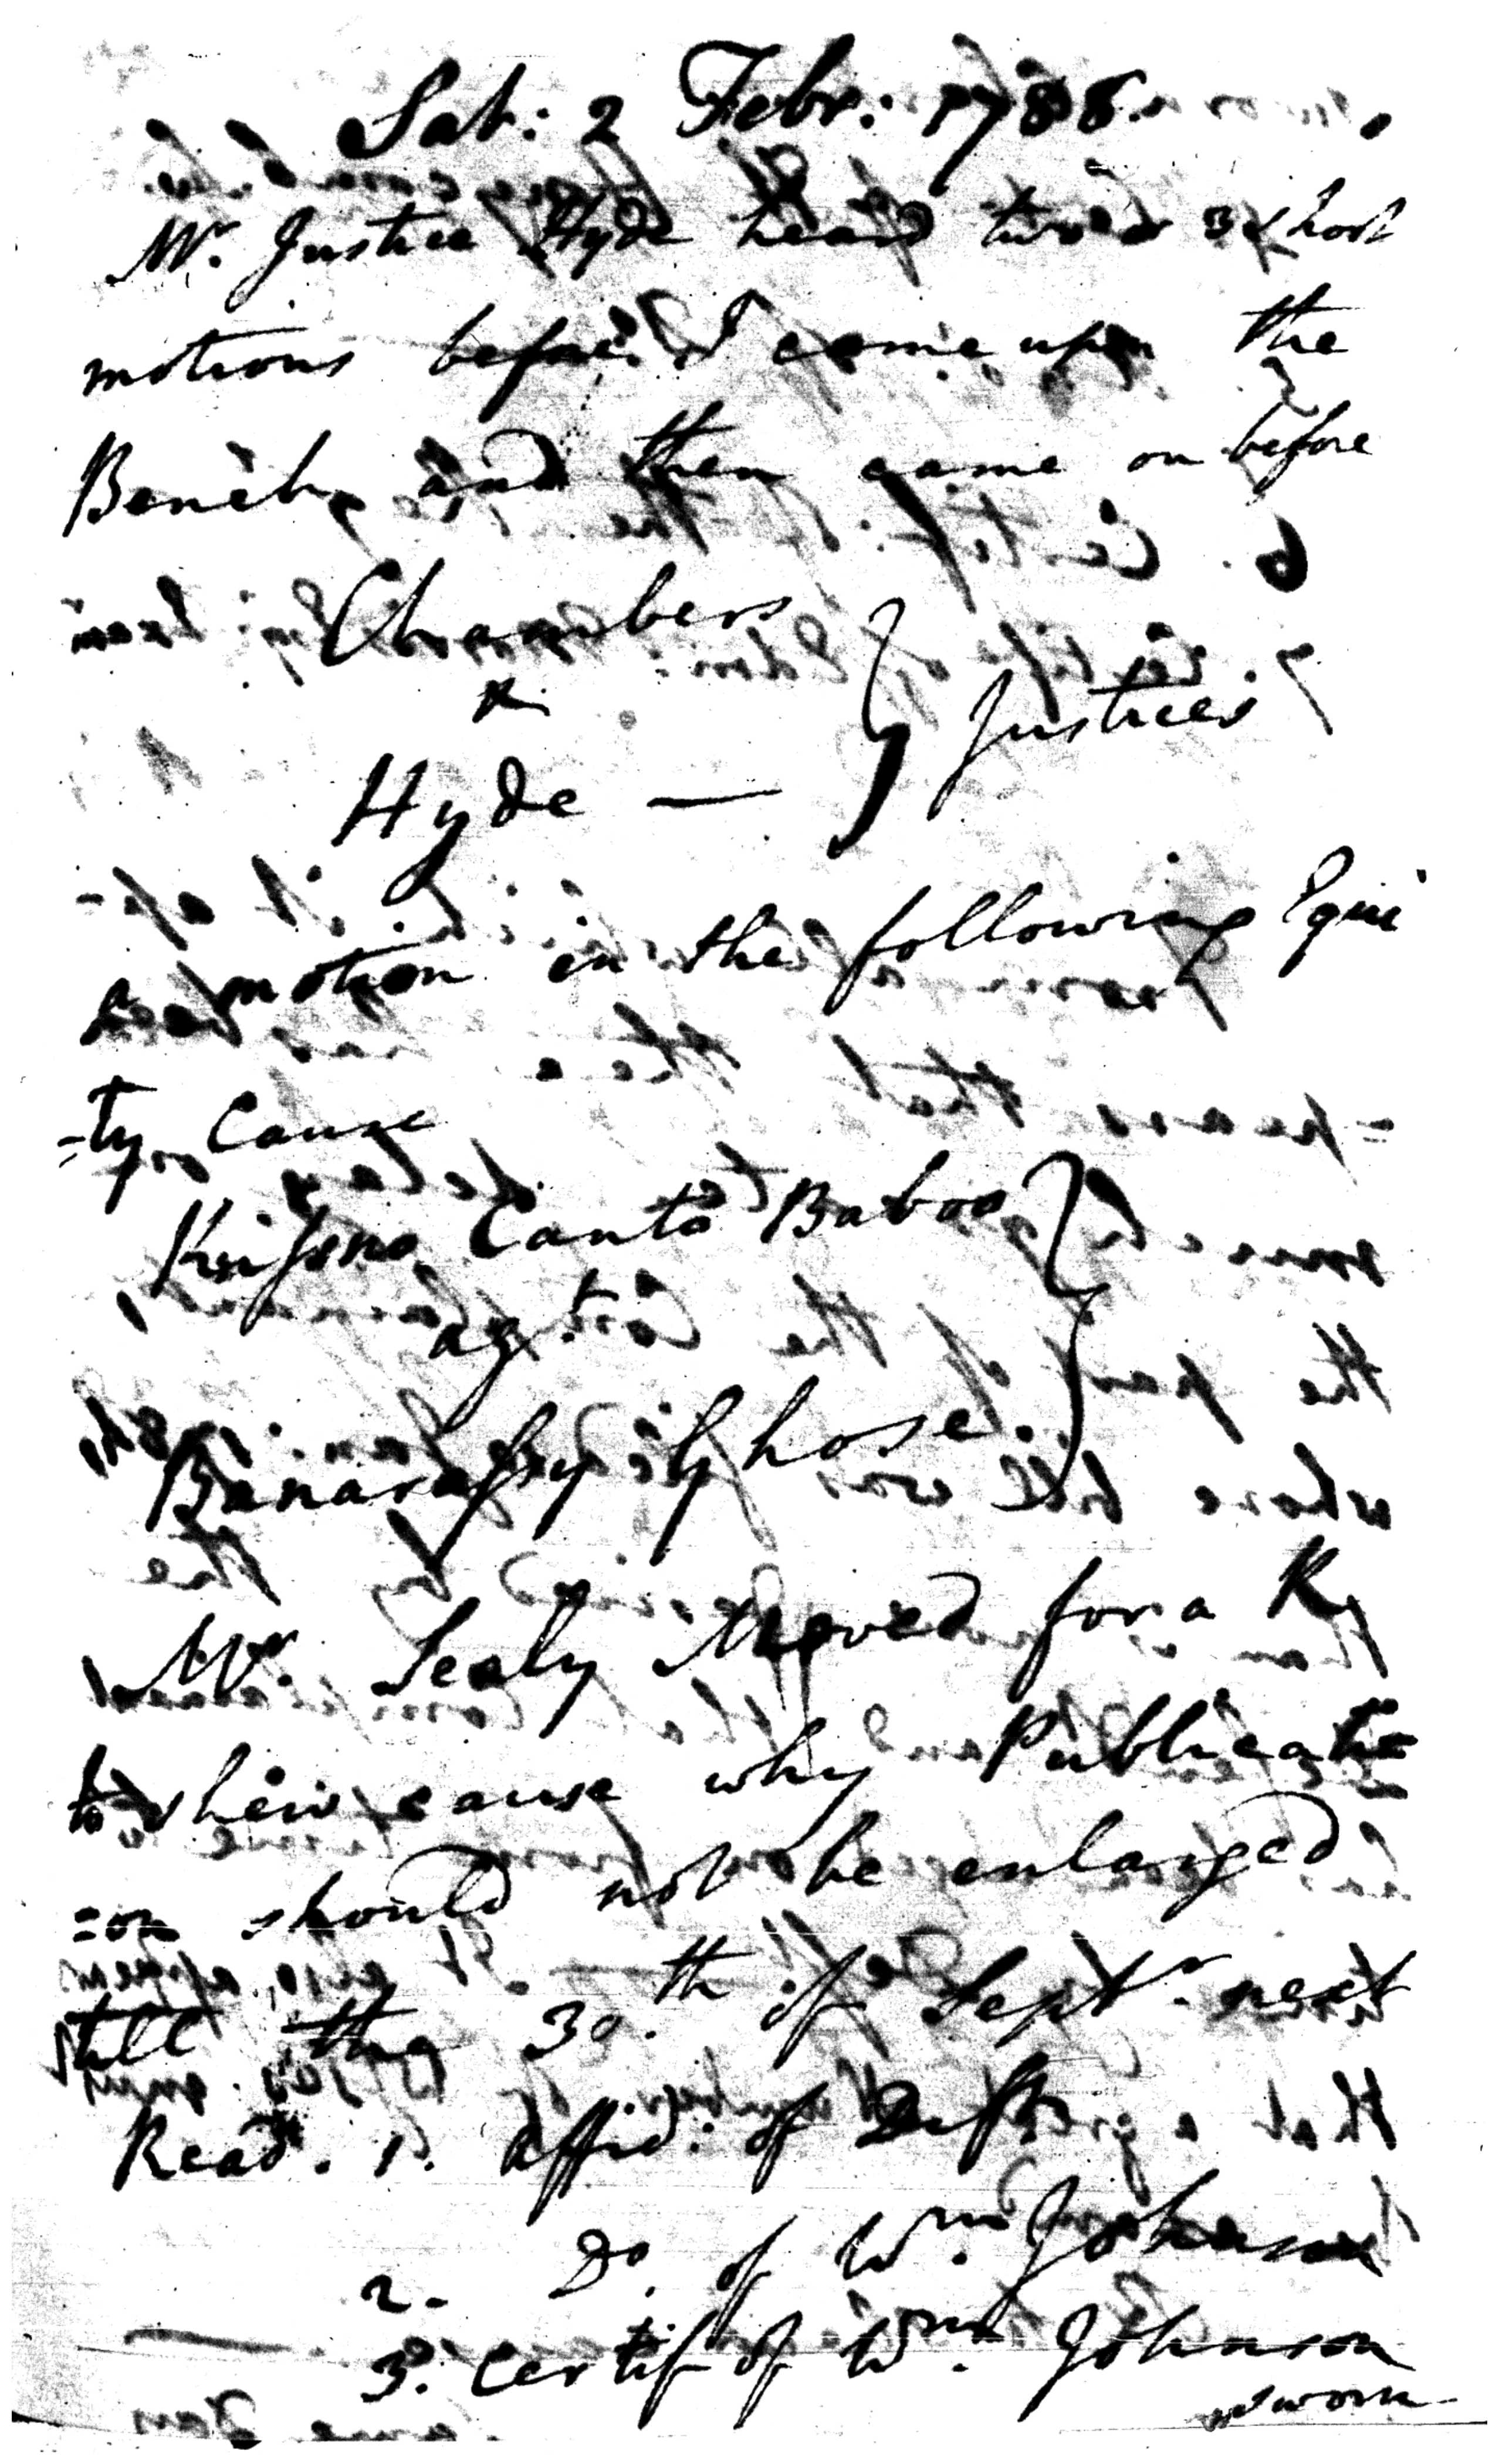 Sat: 2 Febr: 1788.
Mr. Justice Hyde heard two or 3 short
motions before I came upon the
Bench, and then came on before
Chambers
&
Hyde — } Justices
a motion in the following Equi
-ty Cause
Krissno Canto Baboo
agt.
Banarassy Ghose.
Mr. Sealy Moved for a R.
to shew cause why Publicati=
=on should not be enlarged
till the 30.th of Septr. next
Read. 1. Affid: of Deft
2. Do. of Wm. Johnson
3. Certif of Wm. Johnson
sworn